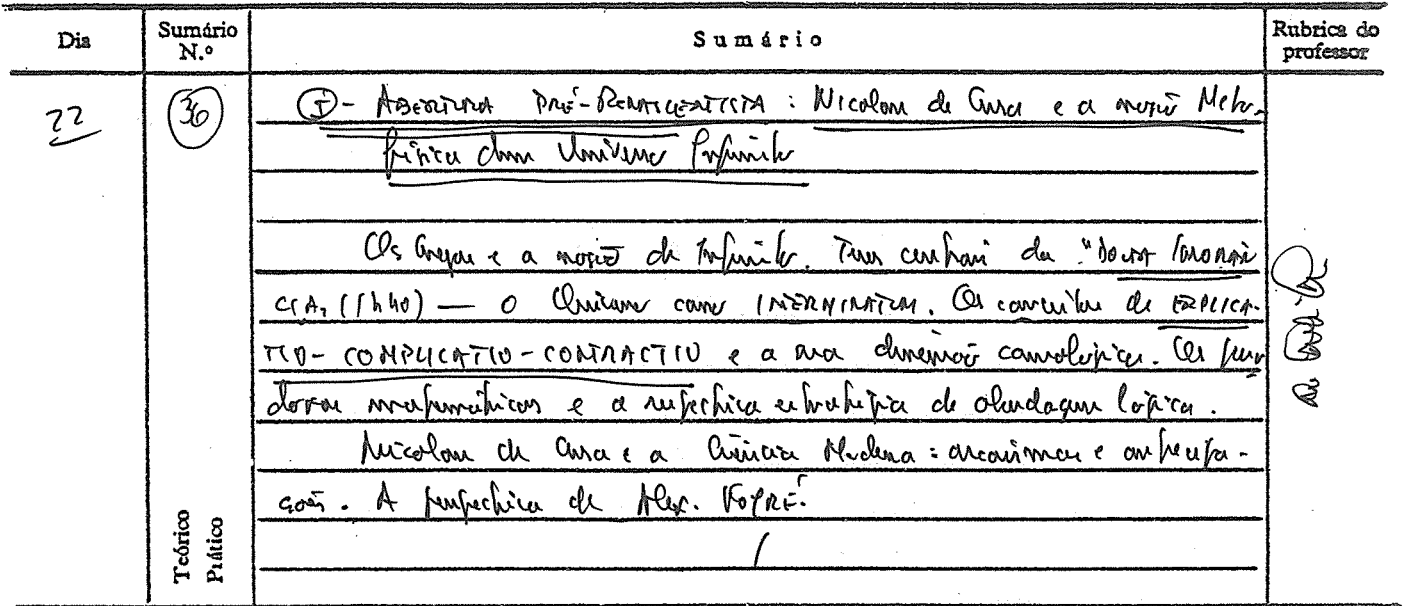 Dia
Sumário N.º
Sumário
Rubrica do professor
22
36
I - ABERTURA PRÉ-RENASCENTISTA: Nicolau de Cusa e a noção Meta-
física dum Universo Infinito
Os Gregos e a noção de Infinito. Teses centrais da "DOUTA IGNORÂN
CIA, (1440) — O Universo como INTERMINATUM. Os conceitos de EXPLICA-
TIO-COMPLICATIO-CONTRACTIO e a sua dimensão cosmológica. Os para
doxos matemáticos e a respectiva estratégia de abordagem lógica.
Nicolau de Cusa e a Ciência Moderna: arcaísmos e antecipa-
ções. A perspectiva de Alex. KOYRÉ.
Teórico
Prático